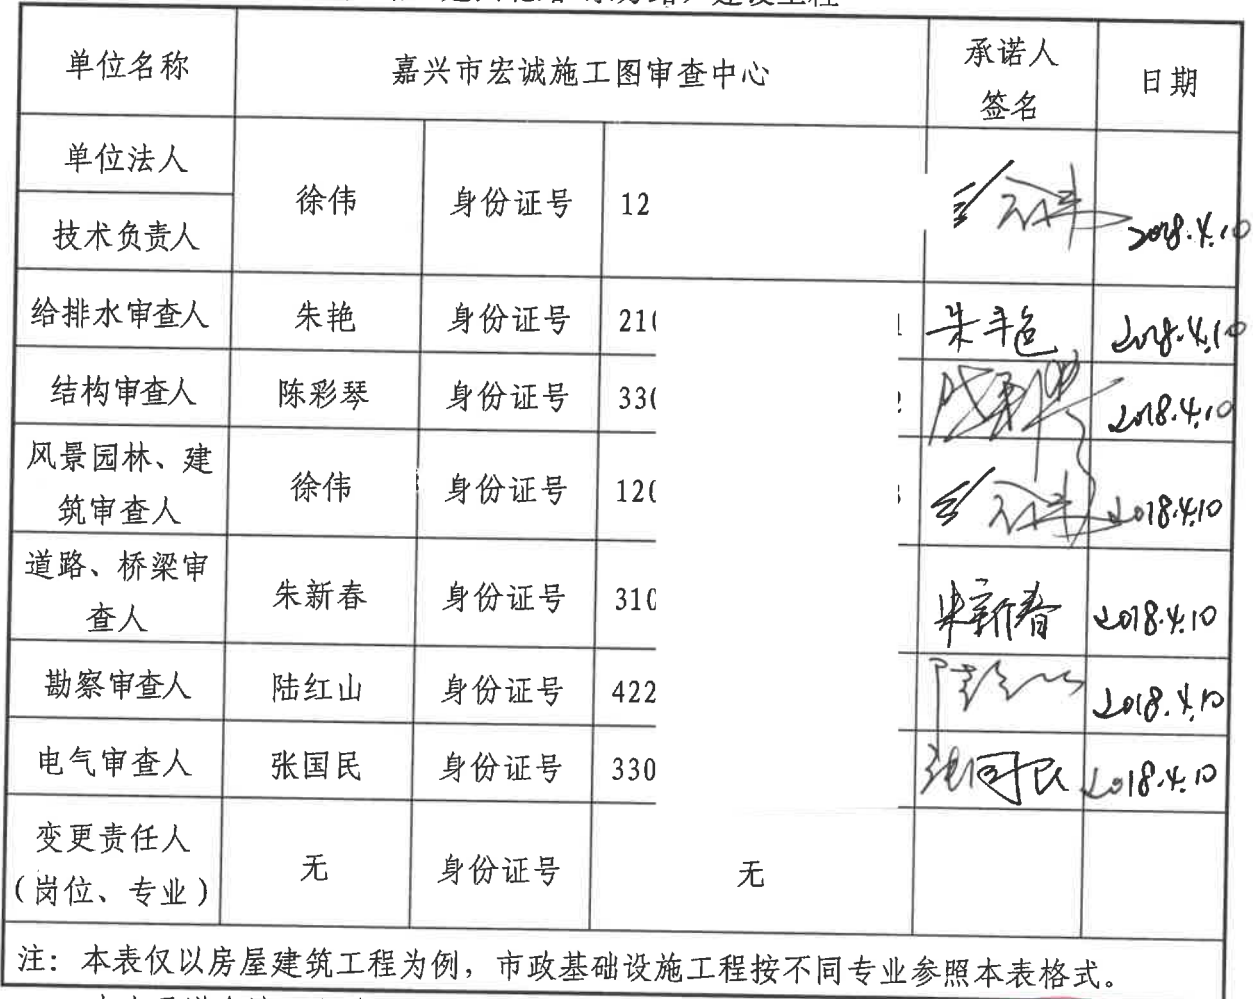 建设工程
单位名称 嘉兴市宏诚施工图审查中心 承诺人 日期
签名
单位法人
徐伟 身份证号 12 徐伟 2018.4.10
技术负责人
给排水审查人 朱艳 身份证号 210 1 朱艳 2018.4.10
结构审查人 陈彩琴 身份证号 330 2 2018.4.10
风景园林、建
筑审查人 徐伟 身份证号 120 3 徐伟 2018.4.10
道路、桥梁审
查人 朱新春 身份证号 310 朱新春 2018.4.10
勘察审查人 陆红山 身份证号 422 2018.4.10
电气审查人 张国民 身份证号 330 张国民 2018.4.10
变更责任人
(岗位、专业) 无 身份证号 无
注：本表仅以房屋建筑工程为例，市政基础设施工程按不同专业参照本表格式。